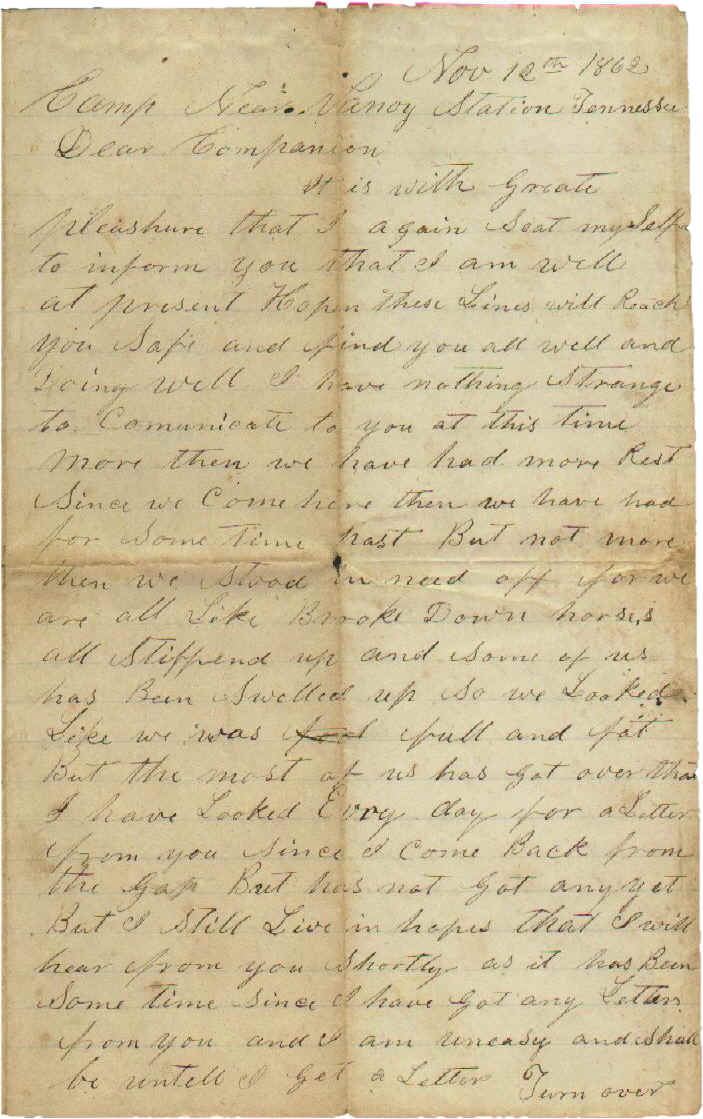 Nov 12th 1862
Camp Near Vanoy Station Tennessee
Dear Companion
It is with Greate
pleashure that I again Seat mySelf
to inform you that I am well
at present Hopen these Lines will Reach
you Safe and find you all well and
Doing well I have nothing Strange
to Comunicate to you at this time
More then we have had more Rest
Since we Come here then we have had
for Some time past But not more
then we Stood in need off for we
are all Like Brooke Down horses
all Stiffend up and Some of us
has Been Swelled up So we Looked
Like we was full and fat
But the most of us has got over that
I have Looked Evry day for a Letter
from you Since I Come Back from
the Gap But has not got any yet
But I Still Live in hopes that I will
hear from you Shortly as it has Been
Some time Since I have got any Letter
from you and I am uneasy and Shall
be untell I get a Letter Turn over